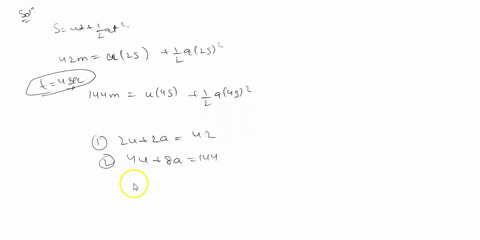 Solⁿ
S = ut + ½at².
42m = u(2s) + ½a(2s)²
t = 4 sec
144m = u(4s) + ½a(4s)²
① 2u + 2a = 42
② 4u + 8a = 144